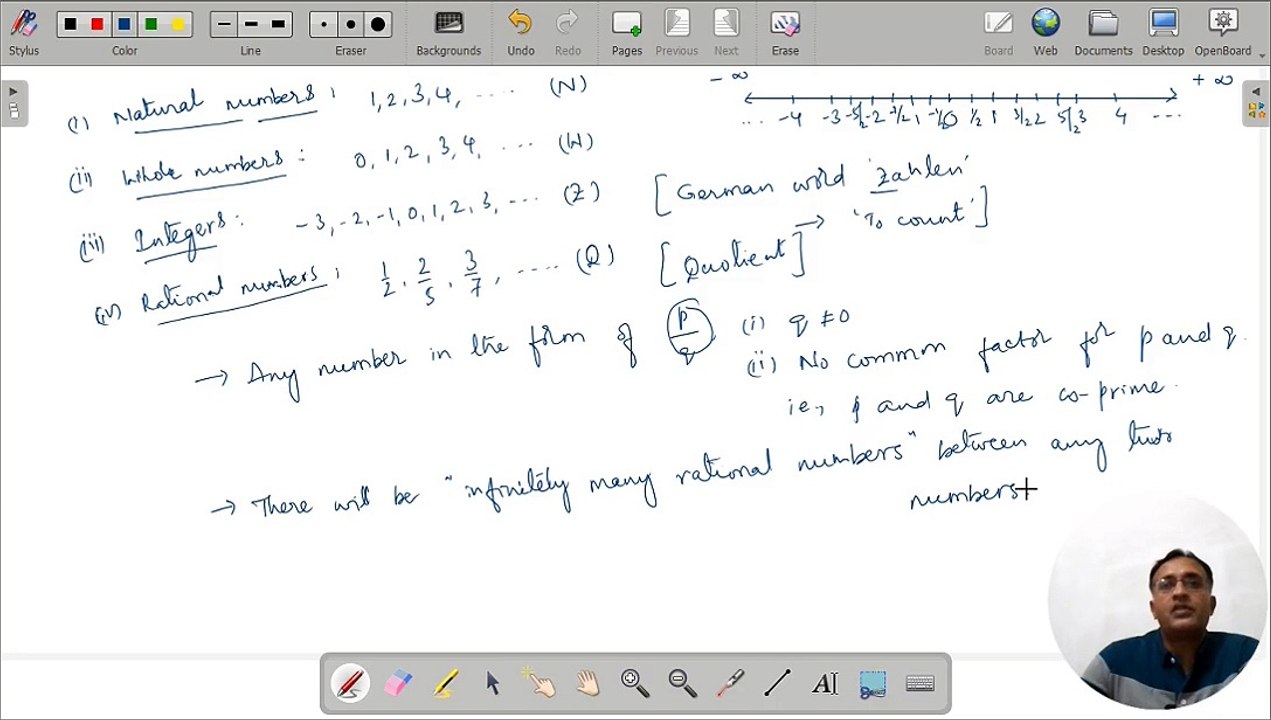 Stylus Color Line Eraser Backgrounds Undo Redo Pages Previous Next Erase Board Web Documents Desktop OpenBoard
- ∞ + ∞
... -4 -3 -5/2 -2 -3/2 1 -1/2 0 1/2 1 3/2 2 5/2 3 4 ...
(i) Natural numbers : 1, 2, 3, 4, ..... (N)
(ii) Whole numbers : 0, 1, 2, 3, 4, ... (W)
(iii) Integers : -3, -2, -1, 0, 1, 2, 3, ... (Z) [German word 'Zahlen'
→ 'To count']
(iv) Rational numbers : 1/2, 2/5, 3/7, .... (Q) [Quotient]
→ Any number in the form of p/q (i) q ≠ 0
(ii) No common factor for p and q.
ie., p and q are co-prime.
→ There will be "infinitely many rational numbers" between any two
numbers
AI